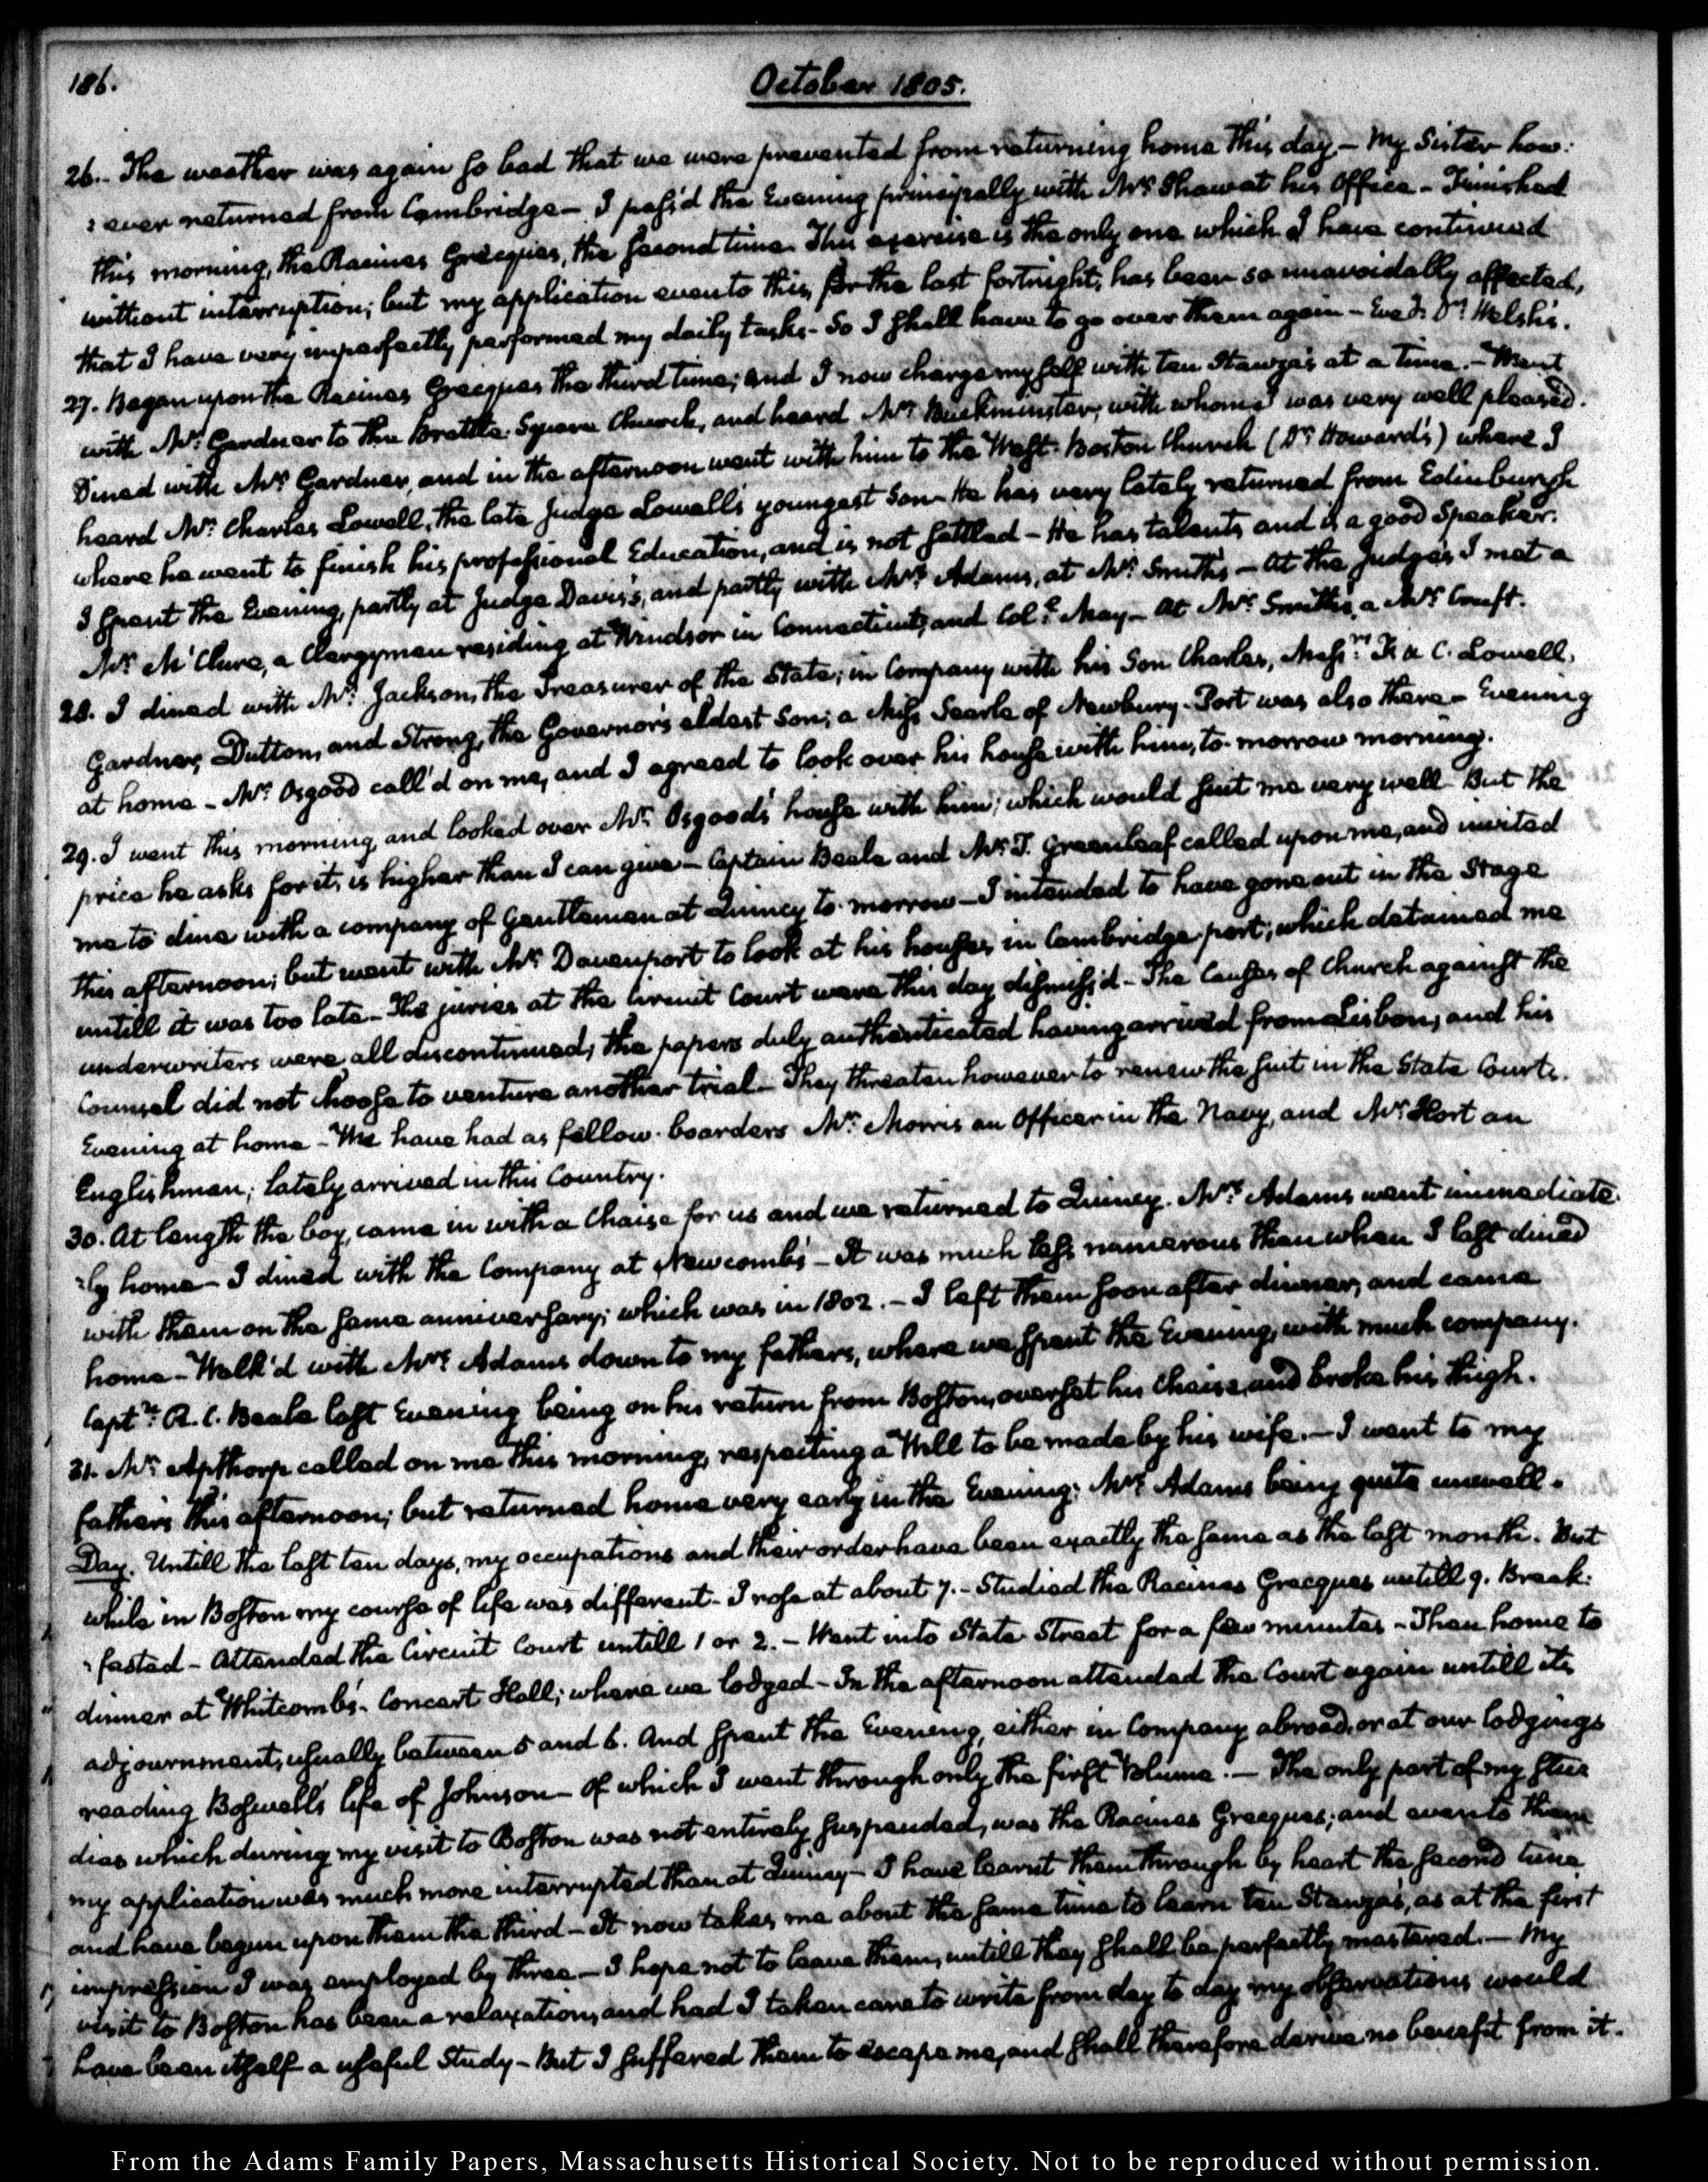 186.
October 1805.
26.. The weather was again so bad that we were prevented from returning home this day — My Sister how:
:ever returned from Cambridge — I pass'd the Evening principally with Mr. Shaw at his Office — Finished
this morning, the Racines Grecques, the second time. This exercise is the only one which I have continued
without interruption; but my application even to this, for the last fortnight, has been so unavoidably affected,
that I have very imperfectly performed my daily tasks — So I shall have to go over them again — Dr. Welsh's.
27. Began upon the Racines Grecques the third time; and I now charge myself with ten Stanza's at a time. — Went
with Mr. Gardner to the Brattle-Square Church, and heard Mr. Buckminster, with whom I was very well pleased.
Dined with Mr. Gardner, and in the afternoon went with him to the West-Boston Church (Dr. Howard's) where I
heard Mr. Charles Lowell, the late Judge Lowell's youngest Son — He has very lately returned from Edinburgh
where he went to finish his professional Education, and is not settled — He has talents and is a good Speaker.
I spent the Evening, partly at Judge Davis's, and partly with Mrs. Adams, at Mr. Smith's — At the Judge's I met a
Mr. McClure, a Clergyman residing at Windsor in Connecticut, and Coll. May — At Mr. Smith's, a Mr. Cruft.
28. I dined with Mr. Jackson, the Treasurer of the State; in Company with his Son Charles, Messrs. C. Lowell,
Gardner, Dutton, and Strong, the Governor's eldest Son; a Miss Searle of Newbury-Port was also there — Evening
at home — Mr. Osgood call'd on me, and I agreed to look over his house with him, to-morrow morning.
29. I went this morning and looked over Mr. Osgood's house with him; which would suit me very well But the
price he asks for it, is higher than I can give — Captain Beale and Mr. T. Greenleaf called upon me, and invited
me to dine with a company of Gentlemen at Quincy to-morrow — I intended to have gone out in the Stage
this afternoon; but went with Mr. Davenport to look at his houses in Cambridge-port; which detained me
untill it was too late — The juries at the Circuit Court were this day dismiss'd — The Causes of Church against the
underwriters were all discontinued; the papers duly authenticated having arrived from Lisbon, and his
Counsel did not choose to venture another trial — They threaten however to renew the suit in the State Courts.
Evening at home — We have had as fellow-boarders Mr. Morris an Officer in the Navy, and Mr. Hort an
Englishman; lately arrived in this Country.
30. At length the boy, came in with a Chaise for us and we returned to Quincy. Mrs. Adams went immediate
:ly home — I dined with the Company at Newcomb's — It was much less numerous than when I last dined
with them on the same anniversary; which was in 1802. — I left them soon after dinner, and came
home — Walk'd with Mrs. Adams down to my father's, where we spent the Evening, with much company.
Captn. R. C. Beale last Evening being on his return from Boston, overset his Chaise, and broke his thigh.
31. Mr. Apthorp called on me this morning, respecting a Will to be made by his wife. — I went to my
father's this afternoon; but returned home very early in the Evening: Mrs. Adams being quite unwell.
Day. Untill the last ten days, my occupations and their order have been exactly the same as the last month. But
while in Boston my course of life was different — I rose at about 7. — Studied the Racines Grecques untill 9. Break:
:fasted — Attended the Circuit Court untill 1 or 2. — Went into State Street for a few minutes — Then home to
dinner at Whitcomb's. Concert Hall; where we lodged — In the afternoon attended the Court again untill its
adjournment, usually between 5 and 6. And spent the Evening, either in Company abroad, or at our lodgings
reading Boswell's life of Johnson — of which I went through only the first Volume. — The only part of my stu
dies which during my visit to Boston was not entirely suspended, was the Racines Grecques; and even to them
my application was much more interrupted than at Quincy — I have learnt them through by heart the second time
and have begun upon them the third — It now takes me about the same time to learn ten Stanza's, as at the first
impression I was employed by three — I hope not to leave them, untill they shall be perfectly mastered. — My
visit to Boston has been a relaxation, and had I taken care to write from day to day my observations would
have been itself a useful Study — But I suffered them to escape me, and shall therefore derive no benefit from it.
From the Adams Family Papers, Massachusetts Historical Society. Not to be reproduced without permission.